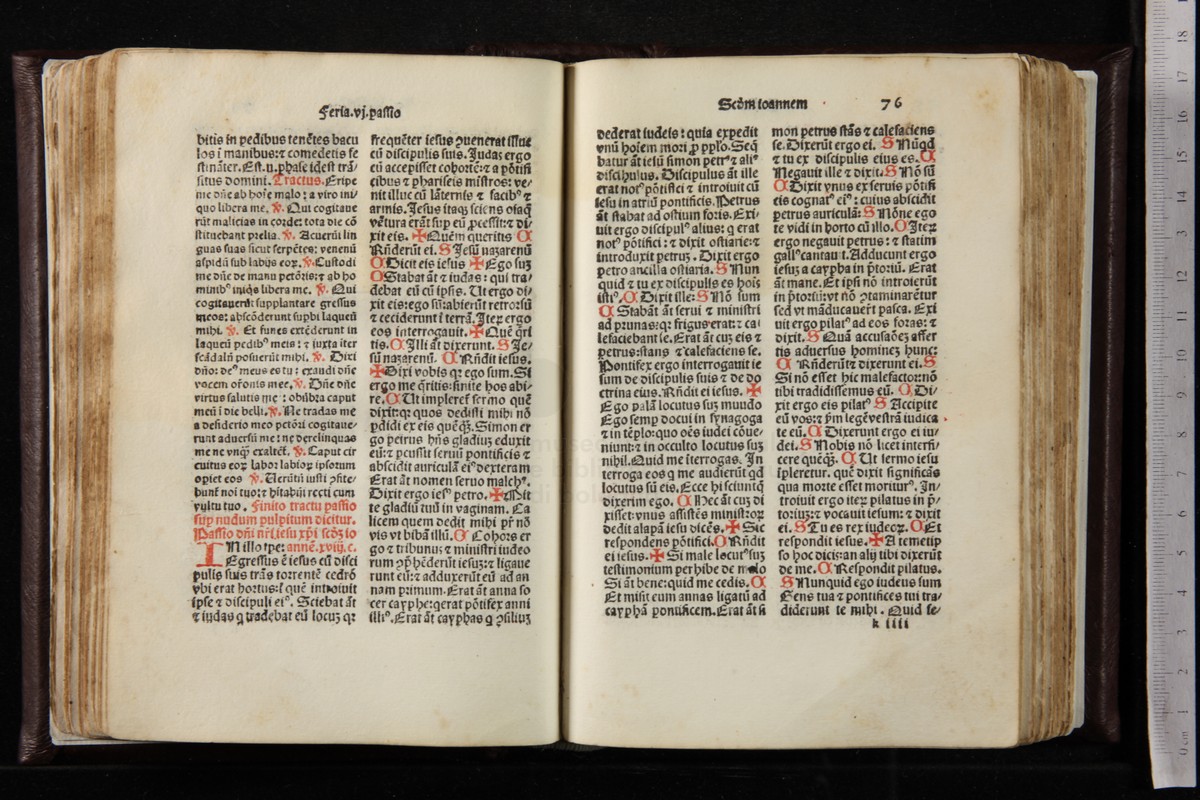 Feria.vj.passio
bitis in pedibus tenẽtes bacu
los i manibus:⁊ comedetis fe
stinãter. Est.n.phase idest trã/
situs domini. Tractus. Eripe
me dñe ab hoĩe malo: a viro ini/
quo libera me. ℣. Qui cogitaue
rũt malicias in corde: tota die cõ
stituebant prelia. ℣. Acuerũt lin
guas suas sicut serpẽtes: venenũ
aspidũ sub labijs eoꝝ. ℣. Custodi
me dñe de manu petõris: ⁊ ab ho
minibꝰ iniqs libera me. ℣. Qui
cogitauerũt supplantare gressus
meos: abscõderunt supbi laqueũ
mihi. ℣. Et funes extẽderunt in
laqueũ pedibꝰ meis: ⁊ iuxta iter
scãdalũ posuerũt mihi. ℣. Dixi
dño: deꝰ meus es tu: exaudi dñe
vocem orõnis mee. ℣. Dñe dñe
virtus salutis me : obũbra caput
meũ i die belli. ℣. Ne tradas me
a desiderio meo petõri: cogitaue/
runt aduersũ me: ne derelinquas
me ne vnqꝫ exaltẽt. ℣. Caput cir
cuitus eoꝝ labor labioꝝ ipsorum
opiet eos ℣. Uerũtñ iusti ꝯfite/
bunt̃ noi tuo: ⁊ hĩtabũt recti cum
vultu tuo . Finito tractu passio
sup nudum pulpitum dicitur.
Passio dñi nr̃i iesu xp̃i scõꝫ io
IN illo tpe: annẽ.xviij.c.
Egressus ẽ iesus cũ disci
pulis suis trãs torrentẽ cedrõ
vbi erat hortus: ĩ quẽ introiuit
ipse ⁊ discipuli eiꝰ. Sciebat ãt
⁊ iudas q tradebat eũ locuꝫ: qꝛ
frequẽter iesus ꝯuenerat illuc
cũ discipulis suis. Judas ergo
cũ accepisset cohortẽ: ⁊ a põtifi
cibus ⁊ phariseis mĩstros: ve/
nit illuc cũ lãternis ⁊ facibꝰ ⁊
armis. Jesus itaqꝫ sciens oĩa q̃
vẽtura erãt sup eũ ꝓcessit: ⁊ di/
xit eis. ✠ Quẽm queritis C
Rñderũt ei. S Jesũ nazarenũ
C Dicit eis iesus ✠ Ego suꝫ
C Stabat ãt ⁊ iudas: qui tra/
debat eũ cũ ipsis. Ut ergo di/
xit eis: ego sũ: abierũt retrorsũ
⁊ ceciderunt ĩ terrã. Iteꝝ ergo
eos interrogauit. ✠ Quẽ q̃ri
tis. C Illi ãt dixerunt. S Je/
sũ nazarenũ. C Rñdit iesus.
✠ Dixi vobis qꝛ ego sum. Si
ergo me q̃ritis: sinite hos abi/
re. C Ut impleret̃ sermo quẽ
dixit: qꝛ quos dedisti mihi nõ
ꝑdidi ex eis quẽqꝫ. Simon er
go petrus hñs gladiuꝫ eduxit
eũ: ⁊ pcussit seruũ pontificis ⁊
abscidit auriculã eiꝰ dexteram
Erat ãt nomen seruo malchꝰ.
Dixit ergo iesꝰ petro. ✠ Mit
te gladiũ tuũ in vaginam. Ca
licem quem dedit mihi pr̃ nõ
vis vt bibã illũ. C Cohors er
go ⁊ tribunus ⁊ ministri iudeo
rum ꝯp̃hẽderũt iesuꝫ: ⁊ ligaue
runt eũ: ⁊ adduxerũt eũ ad an
nam primum. Erat ãt anna so
cer cayphe: q̃ erat põtifex anni
illiꝰ. Erat ãt cayphas q ꝯsiliuꝫ
Scd̃m ioannem 76
dederat iudeis: quia expedit
vnũ hoĩem mori ꝓ pplo. Seq̃
batur ãt iesũ simon petrꝰ ⁊ aliꝰ
discipulus. Discipulus ãt ille
erat notꝰ põtifici ⁊ introiuit cũ
iesu in atriũ pontificis. Petrus
ãt stabat ad ostium foris. Exi/
uit ergo discipulꝰ alius: q erat
notꝰ põtifici: ⁊ dixit ostiarie: ⁊
introduxit petruꝫ. Dixit ergo
petro ancilla ostiaria. S Nun
quid ⁊ tu ex discipulis es hois
istiꝰ. C Dixit ille: S Nõ sum
C Stabãt ãt serui ⁊ ministri
ad prunas: qꝛ frigus erat: ⁊ ca/
lefaciebant se. Erat ãt cuꝫ eis ⁊
petrus: stans ⁊ calefaciens se.
Pontifex ergo interrogauit ie
sum de discipulis suis ⁊ de do
ctrina eius. Rñdit ei iesus. ✠
Ego palã locutus suꝫ mundo
Ego semp docui in synagoga
⁊ in tẽplo: quo oẽs iudei cõue/
niunt: ⁊ in occulto locutus suꝫ
nihil. Quid me ĩterrogas. In
terroga eos q me audierũt qd
locutus sũ eis. Ecce hi sciunt q̃
dixerim ego. C Hec ãt cuꝫ di
xisset: vnus assistẽs ministroꝝ
dedit alapã iesu dicẽs. ✠ Sic
respondens põtifici. C Rñdit
ei iesus. ✠ Si male locutꝰ suꝫ
testimonium perhibe de malo
Si ãt bene: quid me cedis. C
Et misit eum annas ligatũ ad
caypħã pontificem. Erat ãt si
mon petrus stãs ⁊ calefaciens
se. Dixerũt ergo ei. S Nũqd
⁊ tu ex discipulis eius es. C
Negauit ille ⁊ dixit. S Nõ sũ
C Dixit vnus ex seruis põtifi
cis cognatꝰ eiꝰ: cuius abscidit
petrus auriculã: S Nõne ego
te vidi in horto cũ illo. C Iteꝝ
ergo negauit petrus: ⁊ statim
gallꝰ cantauit. Adducunt ergo
iesuꝫ a caypha in p̃toriũ. Erat
ãt mane. Et ipsi nõ introierũt
in p̃toriũ: vt nõ ꝯtaminarẽtur
sed vt mãducarẽt pasca. Exi
uit ergo pilatꝰ ad eos foras: ⁊
dixit. S Quã accusaõeꝫ affer
tis aduersus hominez hunc:
C Rñderũt ⁊ dixerunt ei. S
Si nõ esset hic malefactor: nõ
tibi tradidissemus eũ. C Di/
xit ergo eis pilatꝰ S Accipite
eũ vos: ⁊ ẜm legẽ vestrã iudica
te eũ. C Dixerunt ergo ei iu/
dei. S Nobis nõ licet interfi/
cere quẽqꝫ. C Ut sermo iesu
ĩpleretur. quẽ dixit significãs
qua morte esset moriturꝰ. In/
troiuit ergo iteꝝ pilatus in p̃/
toriuꝫ: ⁊ vocauit iesum: ⁊ dixit
ei. S Tu es rex iudeoꝝ. C Et
respondit iesus. ✠ A temetip
so hoc dicis: an alij tibi dixerũt
de me. C Respondit pilatus.
S Nunquid ego iudeus sum
Gens tua ⁊ pontifices tui tra/
diderunt te mihi. Quid fe/
k iiii